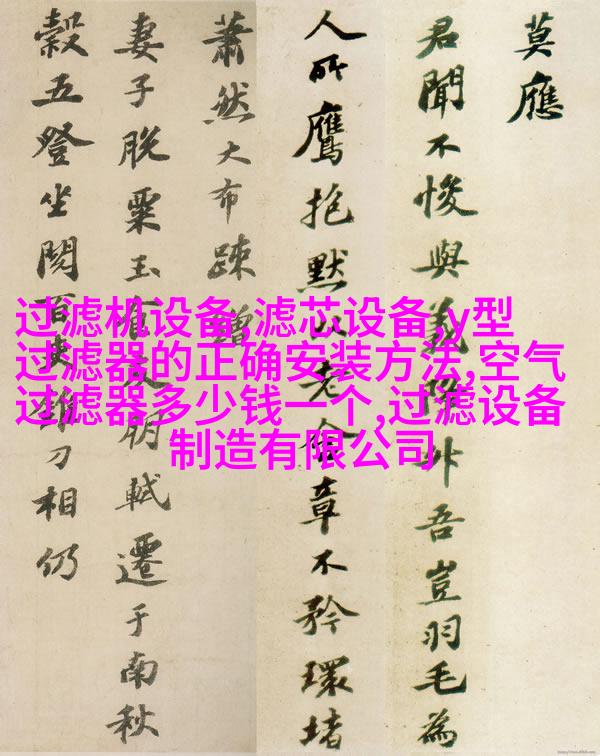 莫應
君聞不悛與義降外吾豈羽毛為
人所鷹抱默以老含章不矜環堵
蕭然大布疎繒
妻子脫粟玉食友朋軾遷于南秋
穀五登坐閱百吏錐刀相仍
过滤机设备,滤芯设备,y型
过滤器的正确安装方法,空气
过滤器多少钱一个,过滤设备
制造有限公司